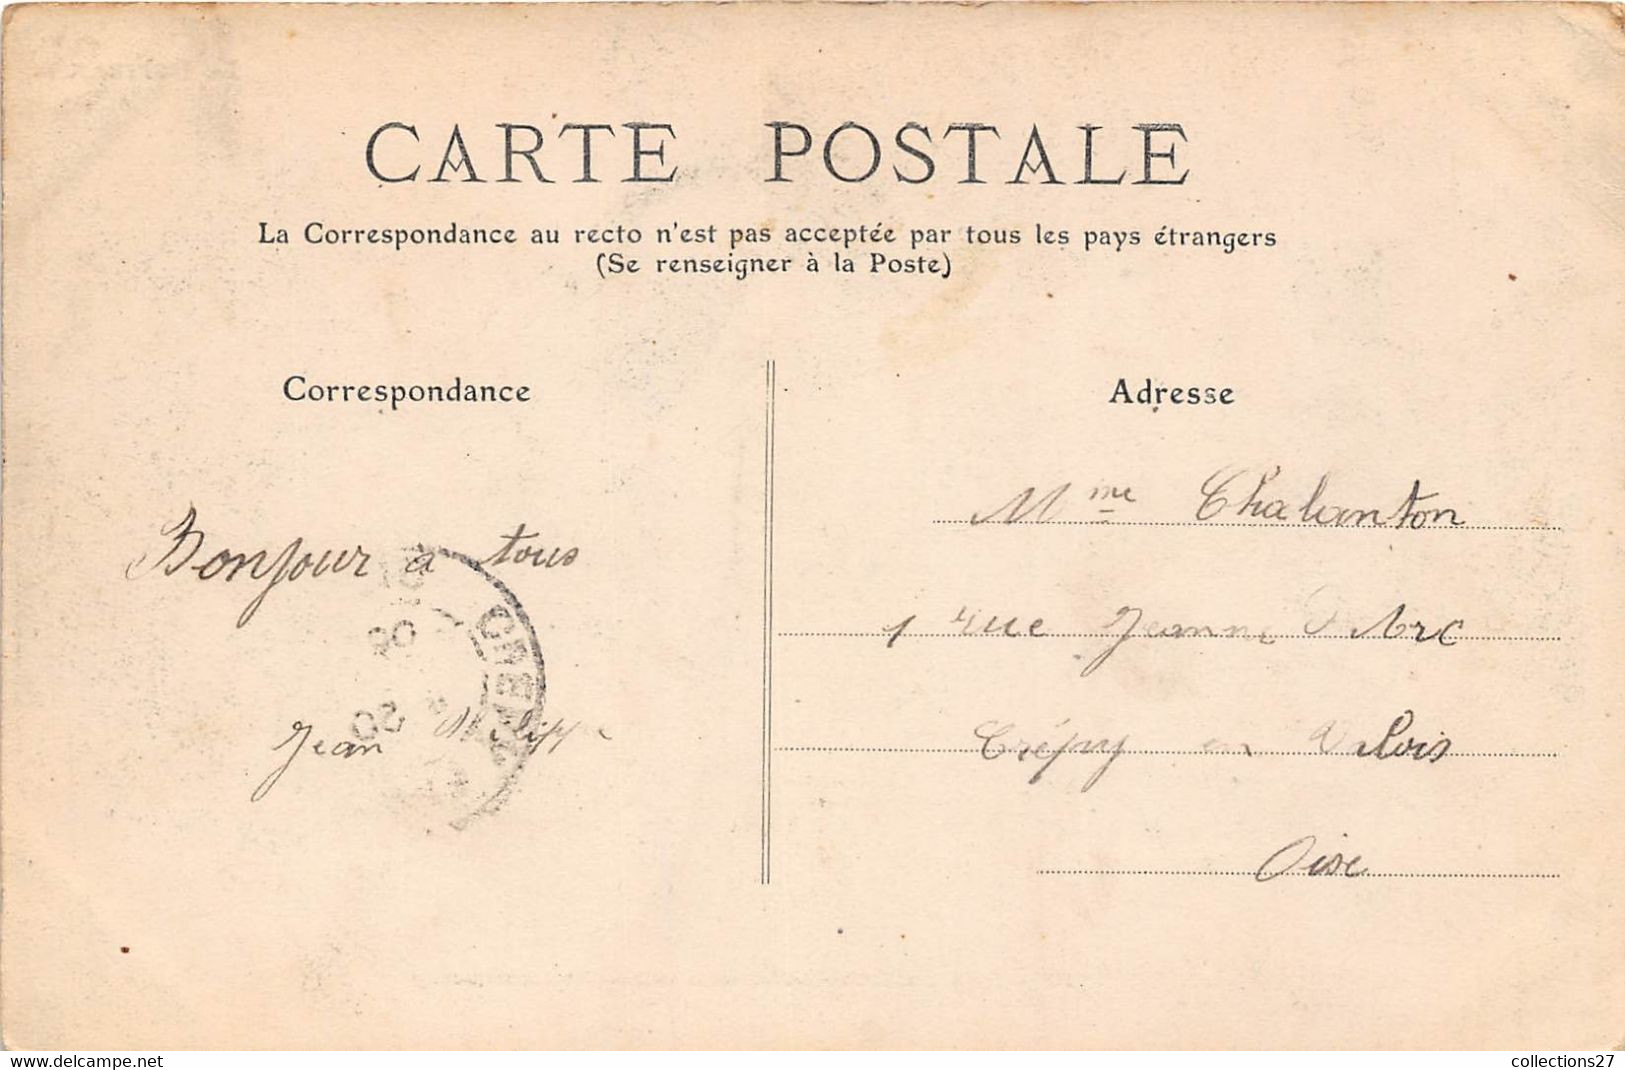 CARTE POSTALE
La Correspondance au recto n'est pas acceptée par tous les pays étrangers
(Se renseigner à la Poste)
Correspondance
Bonjour à tous
Jean Philippe
Adresse
Mme Chalanton
1 rue Jeanne d'Arc
Crépy en Valois
Oise
www.delcampe.net
collections27